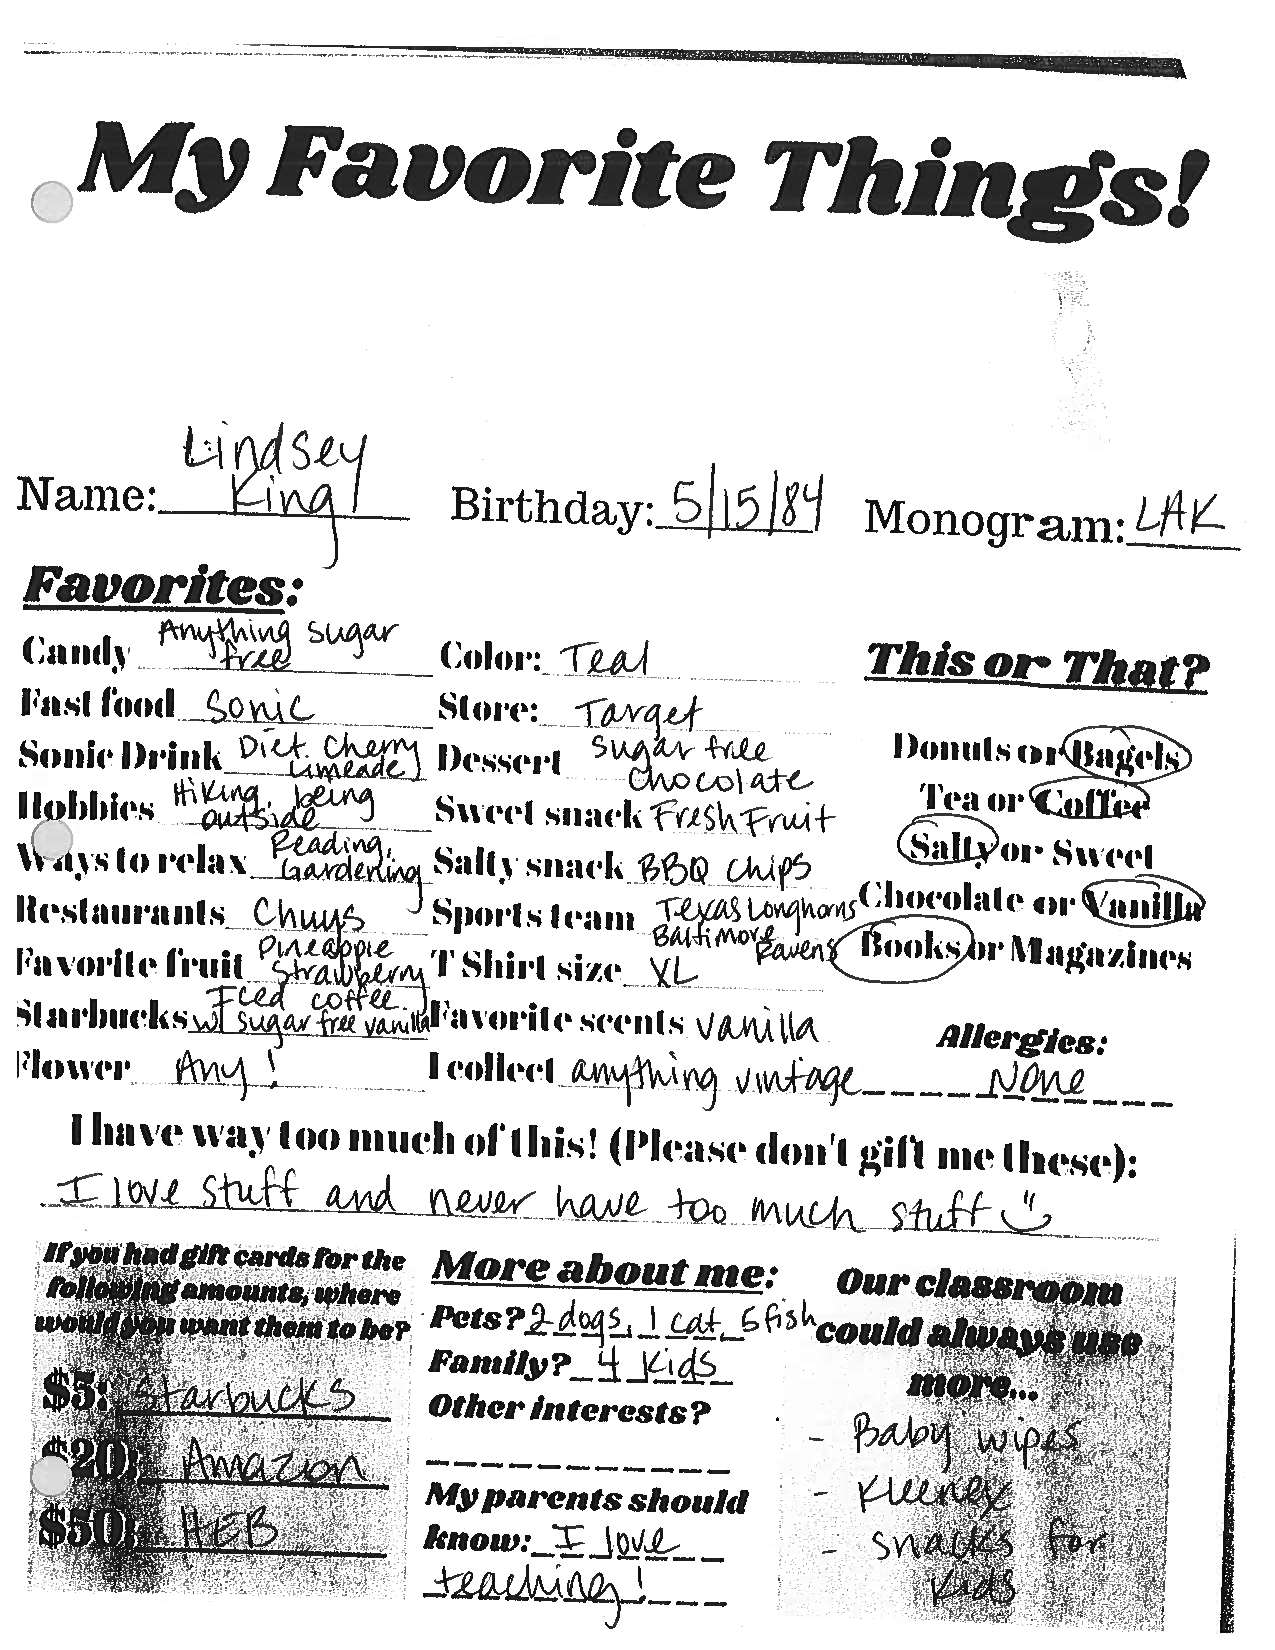 My Favorite Things!
Name: Lindsey King Birthday: 5/15/84 Monogram: LAK
Favorites:
Candy Anything sugar free
Fast food Sonic
Sonic Drink Diet Cherry Limeade
Hobbies Hiking, being outside
Ways to relax Reading, Gardening
Restaurants Chuys
Favorite fruit Pineapple Strawberry
Starbucks Iced coffee w/ sugar free vanilla
Flower Any!
Color: Teal
Store: Target
Dessert sugar free chocolate
Sweet snack Fresh Fruit
Salty snack BBQ Chips
Sports team Texas Longhorns Baltimore Ravens
T Shirt size XL
Favorite scents vanilla
I collect anything vintage
This or That?
Donuts or Bagels
Tea or Coffee
Salty or Sweet
Chocolate or Vanilla
Books or Magazines
Allergies:
None
I have way too much of this! (Please don't gift me these):
I love stuff and never have too much stuff
If you had gift cards for the
following amounts, where
would you want them to be?
$5: Starbucks
$20: Amazon
$50: HEB
More about me:
Pets? 2 dogs, 1 cat, 5 fish
Family? 4 kids
Other interests?
My parents should
know: I love
teaching!
Our classroom
could always use
more...
- Baby wipes
- Kleenex
- snacks for
kids